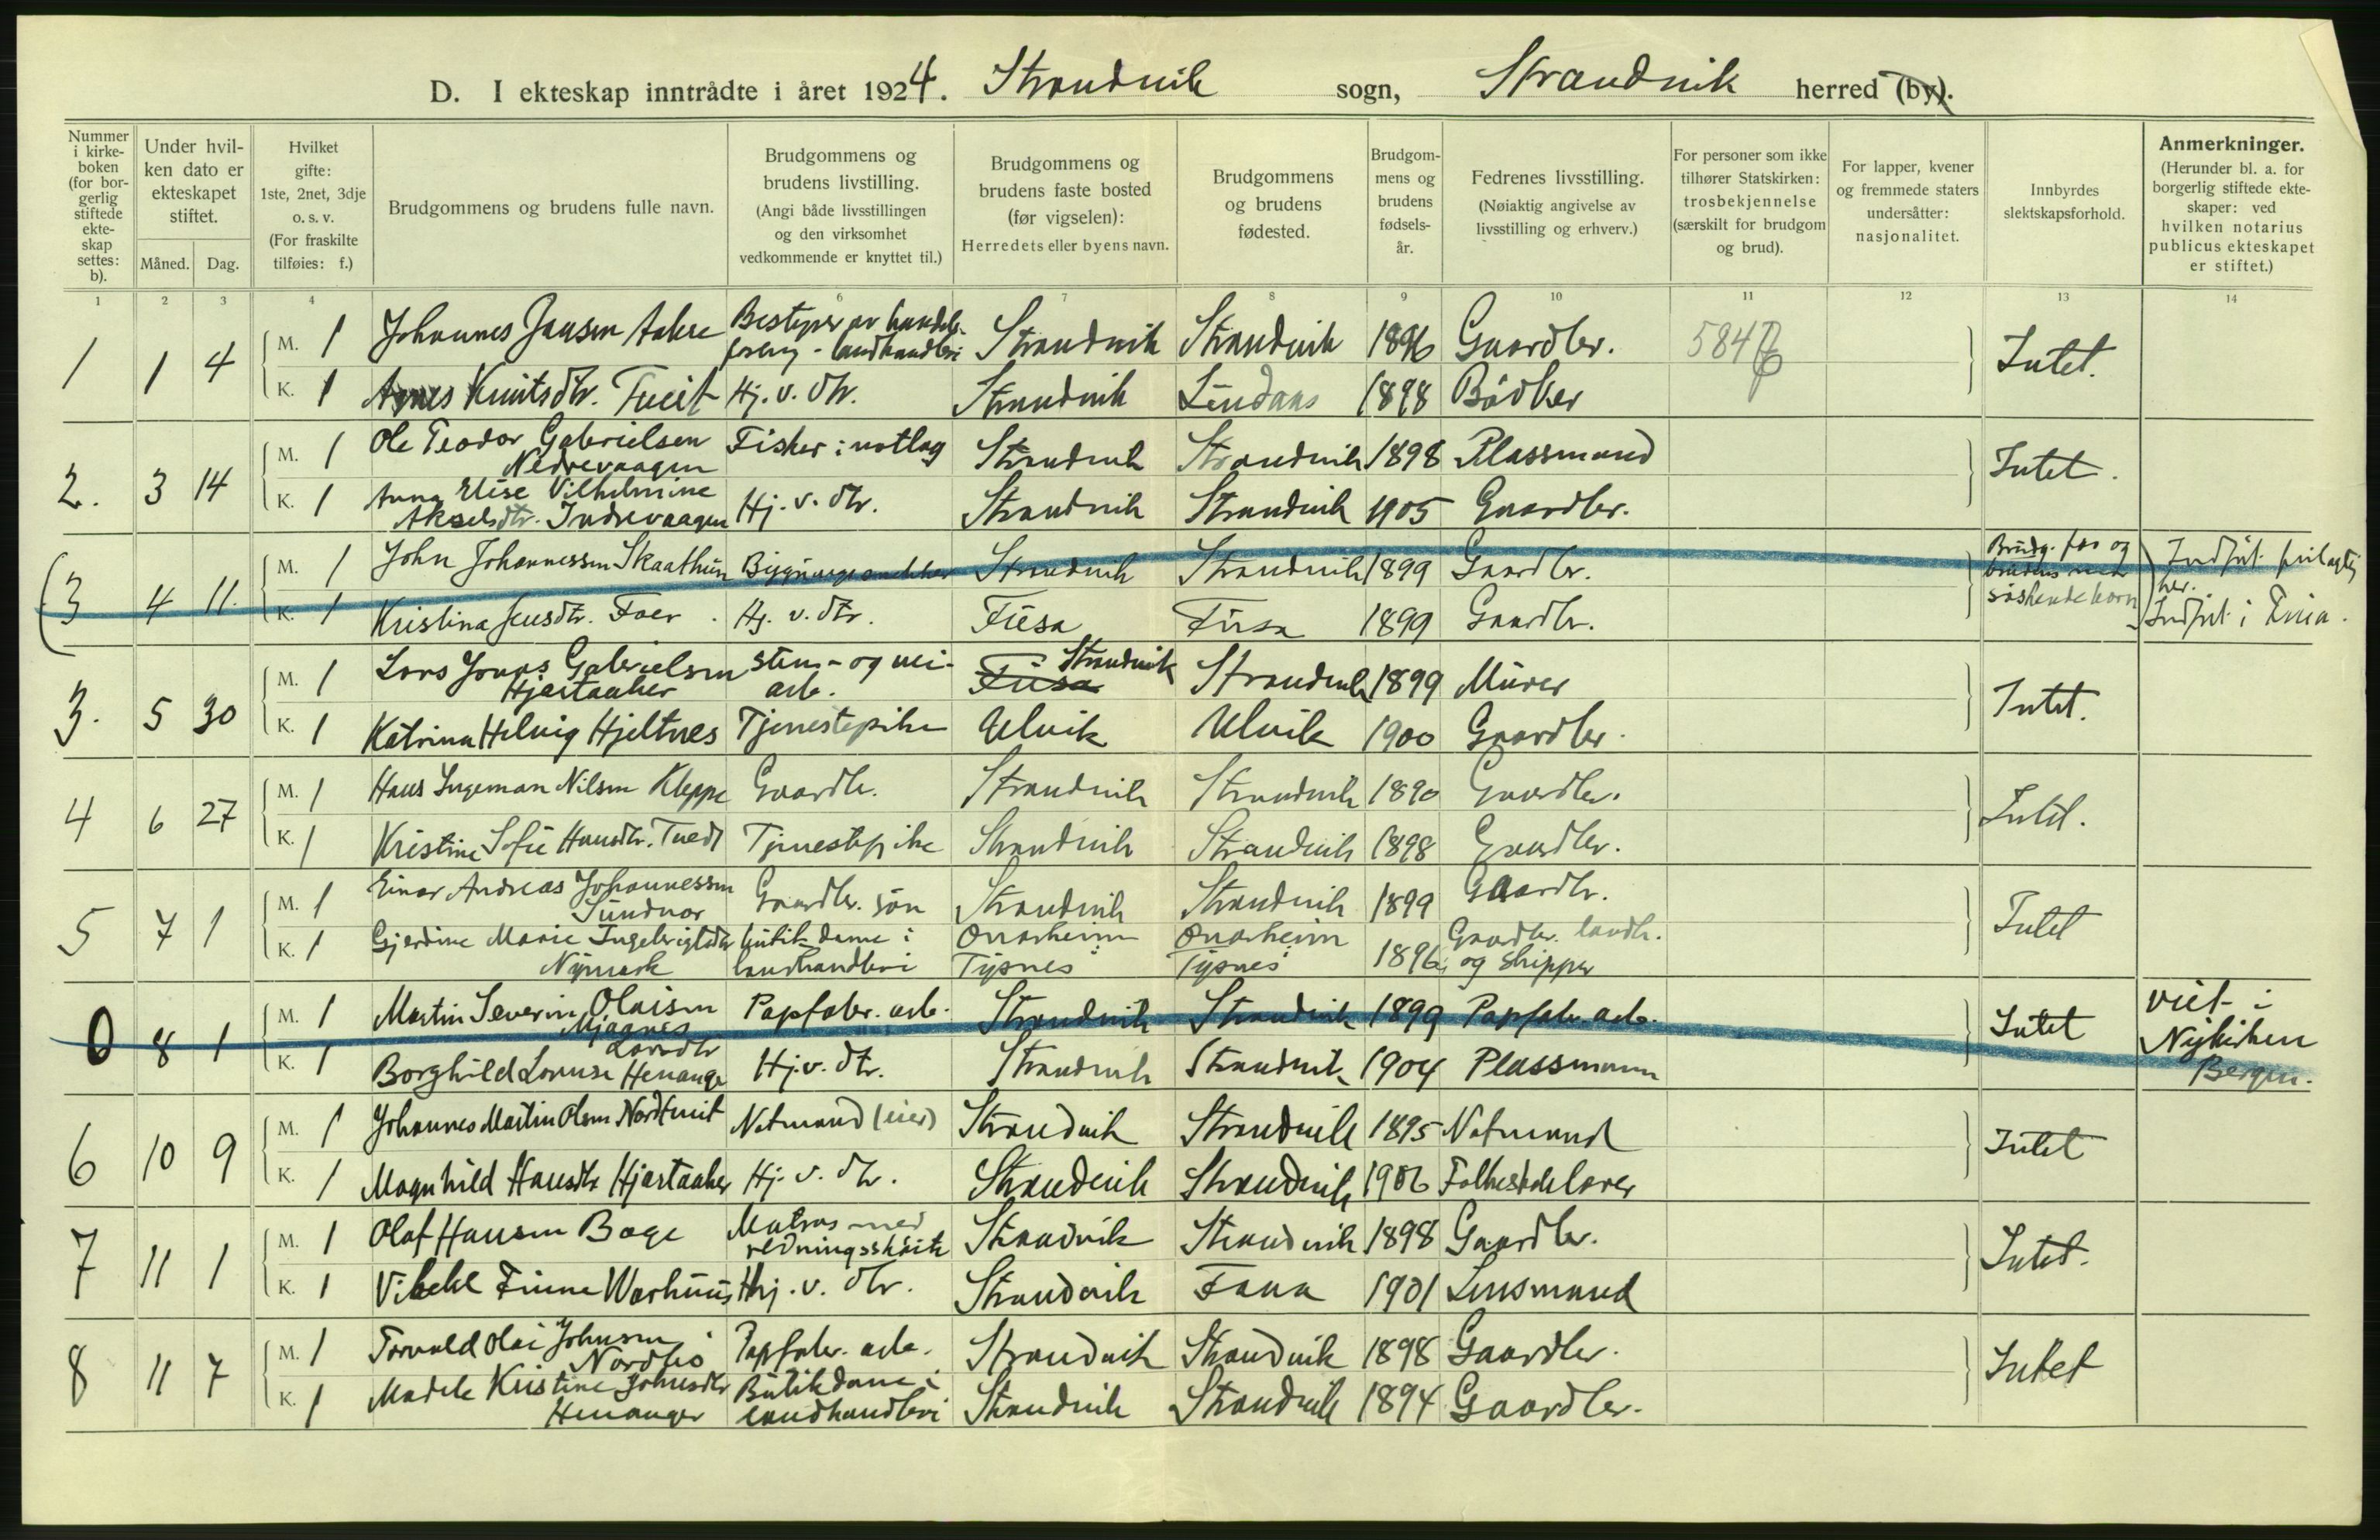 D. I ekteskap inntrådte i året 1924. Strandvik sogn, Strandvik herred (by).
Nummer i kirkeboken (for borgerlig stiftede ekteskap settes: b).
Under hvilken dato er ekteskapet stiftet.
Måned. Dag.
Hvilket gifte: 1ste, 2net, 3dje o. s. v. (For fraskilte tilføies: f.)
Brudgommens og brudens fulle navn.
Brudgommens og brudens livstilling. (Angi både livsstillingen og den virksomhet vedkommende er knyttet til.)
Brudgommens og brudens faste bosted (før vigselen): Herredets eller byens navn.
Brudgommens og brudens fødested.
Brudgommens og brudens fødselsår.
Fedrenes livsstilling. (Nøiaktig angivelse av livsstilling og erhverv.)
For personer som ikke tilhører Statskirken: trosbekjennelse (særskilt for brudgom og brud).
For lapper, kvener og fremmede staters undersåtter: nasjonalitet.
Innbyrdes slektskapsforhold.
Anmerkninger. (Herunder bl. a. for borgerlig stiftede ekteskaper: ved hvilken notarius publicus ekteskapet er stiftet.)
1 2 3 4 6 7 8 9 10 11 12 13 14
1 1 4 M. 1 Johannes Jansen Aakre Bestyrer av handelsforeng - landhandleri Strandvik Strandvik 1896 Gaardbr. 584 Intet.
K. 1 Agnes Knutsdtr. Tveit Hj. v. dtr. Strandvik Lindaas 1898 Bødker
2. 3 14 M. 1 Ole Teodor Gabrielsen Nedrevaagen Fisker i notlag Strandvik Strandvik 1898 Plassmand Intet.
K. 1 Anna Elise Vilhelmine Akselsdtr. Indrevaagen Hj. v. dtr. Strandvik Strandvik 1905 Gaardbr.
(3 4 11. M. 1 John Johannessen Skaathun Bygningssnekker Strandvik Strandvik 1899 Gaardbr. Brudg. far og brudens mor søskendebarn Indført her. Indført i Fusa.
K. 1 Kristina Jensdtr. Foer. Hj. v. dtr. Fusa Fusa 1899 Gaardbr.
3. 5 30 M. 1 Lars Jonas Gabrielsen Hjartaaker sten- og vei-arb. Fusa Strandvik Strandvik 1899 Murer Intet.
K. 1 Katrina Helvig Hjeltnes Tjenestepike Ulvik Ulvik 1900 Gaardbr.
4 6 27 M. 1 Hans Ingeman Nilsen Kleppe Gaardbr. Strandvik Strandvik 1890 Gaardbr. Intet.
K. 1 Kristine Sofie Hansdtr. Tvedt Tjenestepike Strandvik Strandvik 1898 Gaardbr.
5 7 1 M. 1 Einar Andreas Johannessen Sundvor Gaardbr. søn Strandvik Strandvik 1899 Gaardbr. Intet
K. 1 Gjerdine Marie Ingebrigtsdtr Nymark butikdame i landhandleri Onarheim Tysnes Onarheim Tysnes 1896 Gaardbr. landh. og skipper
0 8 1 M. 1 Martin Severin Olaisen Mjaanes Papfabr. arb. Strandvik Strandvik 1899 Papfabr. arb. Intet viet i Nykirken Bergen.
K. 1 Borghild Lovise Larsdtr Henanger Hj. v. dtr. Strandvik Strandvik 1904 Plassmann
6 10 9 M. 1 Johannes Martin Olsen Nordtveit Notmand (eier) Strandvik Strandvik 1895 Notmand Intet
K. 1 Magnhild Hansdtr Hjartaaker Hj. v. dtr. Strandvik Strandvik 1906 Folkeskolelærer
7 11 1 M. 1 Olaf Hansen Bage Matros med redningsskøite Strandvik Strandvik 1898 Gaardbr. Intet.
K. 1 Vibeke Finne Warhuus Hj. v. dtr. Strandvik Fana 1901 Lensmand
8 11 7 M. 1 Torvald Olai Johnsen Nordbø Papfabr. arb. Strandvik Strandvik 1898 Gaardbr. Intet
K. 1 Madele Kristine Johnsdtr Henanger Butikdame i landhandleri Strandvik Strandvik 1894 Gaardbr.